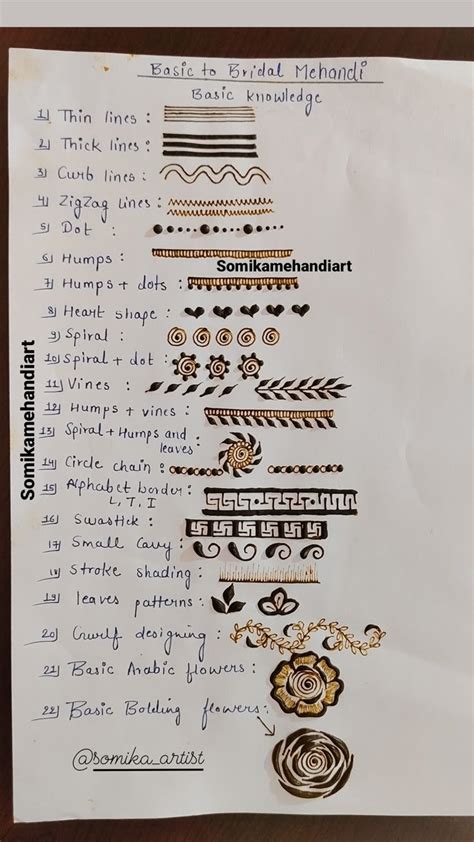 Basic to Bridal Mehandi
Basic knowledge
1) Thin lines :
2) Thick lines :
3) Curb lines :
4) ZigZag lines :
5) Dot :
6) Humps :
Somikamehandiart
7) Humps + dots :
8) Heart shape :
9) Spiral :
10) Spiral + dot :
11) Vines :
12) Humps + vines :
13) Spiral + Humps and
leaves :
14) Circle chain :
15) Alphabet border :
L, T, I
16) Swastick :
17) Small Cavy :
18) Stroke shading :
19) leaves patterns :
20) designing :
21) Basic Arabic flowers :
22) Basic Bolding flowers :
Somikamehandiart
@somika_artist